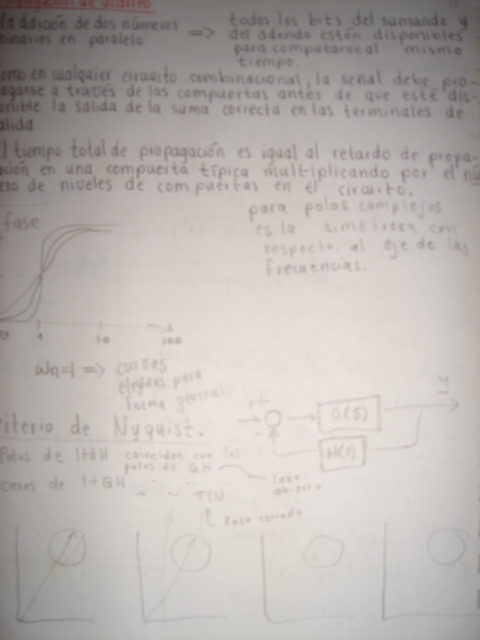 Propagación de acarreo
la adición de dos números
binarios en paralelo
=> todos los bits del sumando y
del adendo estén disponibles
para computarse al mismo
tiempo.
como en cualquier circuito combinacional, la señal debe pro-
agarse a través de las compuertas antes de que esté dis-
onible la salida de la suma correcta en las terminales de
alida.
El tiempo total de propagación es igual al retardo de propa-
ación en una compuerta típica multiplicando por el nú
ero de niveles de compuertas en el circuito.
para polos complejos
es la simetrica con
respecto al eje de las
frecuencias.
fase
1 10 100
Wn=1 => curvas
elegidas para
forma general.
riterio de Nyquist.
+
-
G(S)
y
H(S)
Polos de 1+GH coinciden con los
polos de GH
lazo
abierto
ceros de 1+GH
T(S)
lazo cerrado